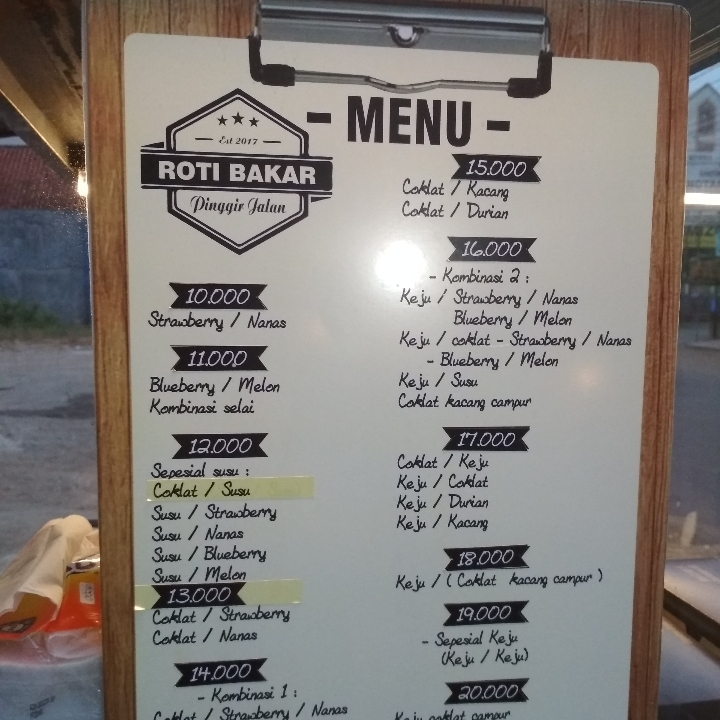 Est 2017
ROTI BAKAR
Pinggir Jalan
- MENU -
10.000
Strawberry / Nanas
11.000
Blueberry / Melon
Kombinasi selai
12.000
Sepesial susu :
Coklat / Susu
Susu / Strawberry
Susu / Nanas
Susu / Blueberry
Susu / Melon
13.000
Coklat / Strawberry
Coklat / Nanas
14.000
- Kombinasi 1 :
Coklat / Strawberry / Nanas
15.000
Coklat / Kacang
Coklat / Durian
16.000
- Kombinasi 2 :
Keju / Strawberry / Nanas
Blueberry / Melon
Keju / coklat - Strawberry / Nanas
- Blueberry / Melon
Keju / Susu
Coklat kacang campur
17.000
Coklat / Keju
Keju / Coklat
Keju / Durian
Keju / Kacang
18.000
Keju / ( Coklat kacang campur )
19.000
- Sepesial Keju
(Keju / Keju)
20.000
Keju coklat campur